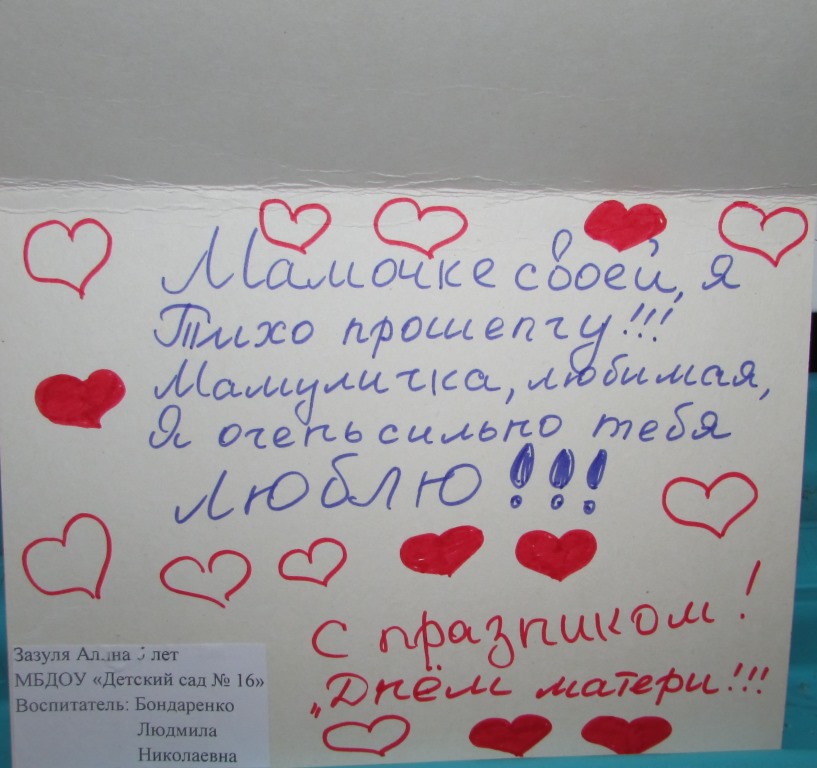 Мамочке своей, я
Тихо прошепчу!!!
Мамуличка, любимая,
Я очень сильно тебя
люблю!!!
С празником!
„Днём матери!!!
Зазуля Алина 5 лет
МБДОУ «Детский сад № 16»
Воспитатель: Бондаренко
Людмила
Николаевна